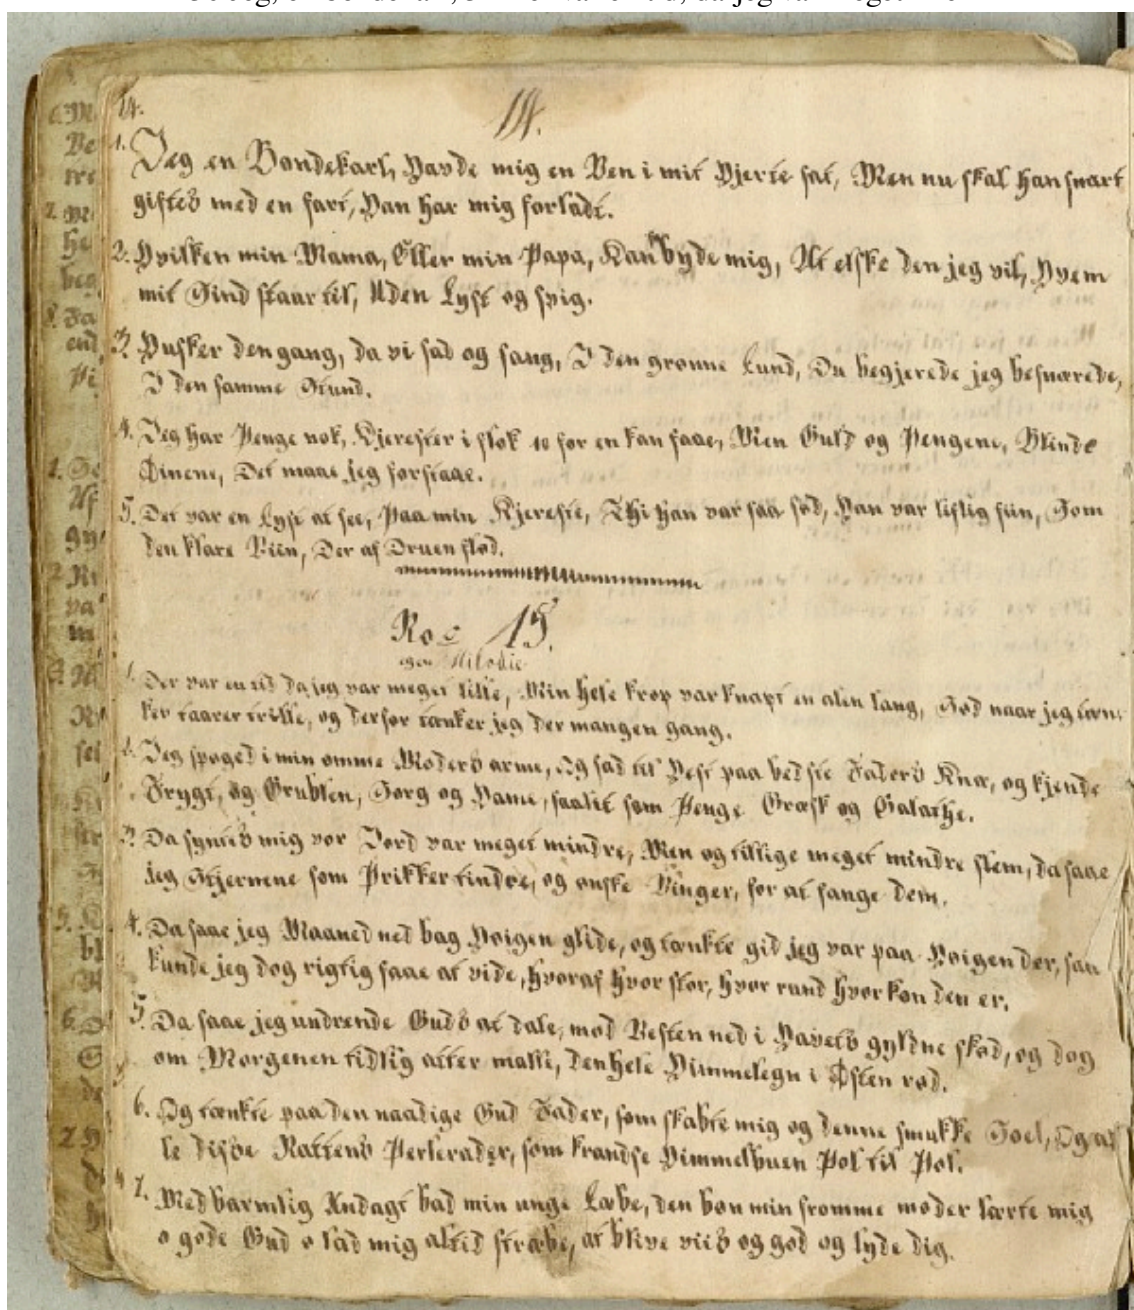 14.
14.
1. Jeg en Bondekarl, Havde mig en Ven i mit Hjerte sat, Men nu skal han snart
giftes med en fart, Han har mig forladt.
2. Hvilken min Mama, Eller min Papa, Kan byde mig, At elske den jeg vil, Hvem
mit Sind staar til, Uden Lyst og svig.
3. Husker den gang, da vi sad og sang, I den grønne Lund, Du begjerede jeg besnærede,
I den samme Stund.
4. Jeg har Penge nok, Kjerester i flok 10 for en kan faae, Men Guld og Pengene, Blinde
Øinene, Det maae jeg forstaae.
5. Det var en Lyst at see, Paa min Kjereste, Thi han var saa sød, Han var liflig fiin, Som
den klare Viin, Der af Druen flød.
No 15.
egen Melodie
1. Der var en tid da jeg var meget lille, Min hele krop var knapt en alen lang, Sød naar jeg tæn-
ker taarer trille, og derfor tænker jeg der mangen gang.
2. Jeg spøged i min ømme Moders arme, Og sad til Hest paa bedste Faders Knæ, og kjende
Frygt, og Grublen, Sorg og Hame, saalit som Penge Græsk og Galathe.
3. Da syntes mig vor Jord var meget mindre, Men og tillige meget mindre slem, da saae
jeg Stjernene som Prikker tindre, og ønske Vinger, for at fange dem.
4. Da saae jeg Maaned ned bag Høigen glide, og tænkte gid jeg var paa Høigen der, saa
kunde jeg dog rigtig faae at vide, hvoraf hvor stor, hvor rund hvor køn den er.
5. Da saae jeg undrende Guds at dale, mod Vesten ned i Havets gyldne skød, og dog
om Morgenen tidlig atter malle, den hele Himmelegn i Østen rød.
6. Og tænkte paa den naadige Gud Fader, som skabte mig og denne smukke Soel, Og al
le disse Nattens Perlerader, som krandse Himmelbuen Pol til Pol.
7. Med barnlig Andagt bad min unge Læbe, den bøn min fromme moder lærte mig
o gode Gud o lad mig altid stræbe, at blive viis og god og lyde dig.